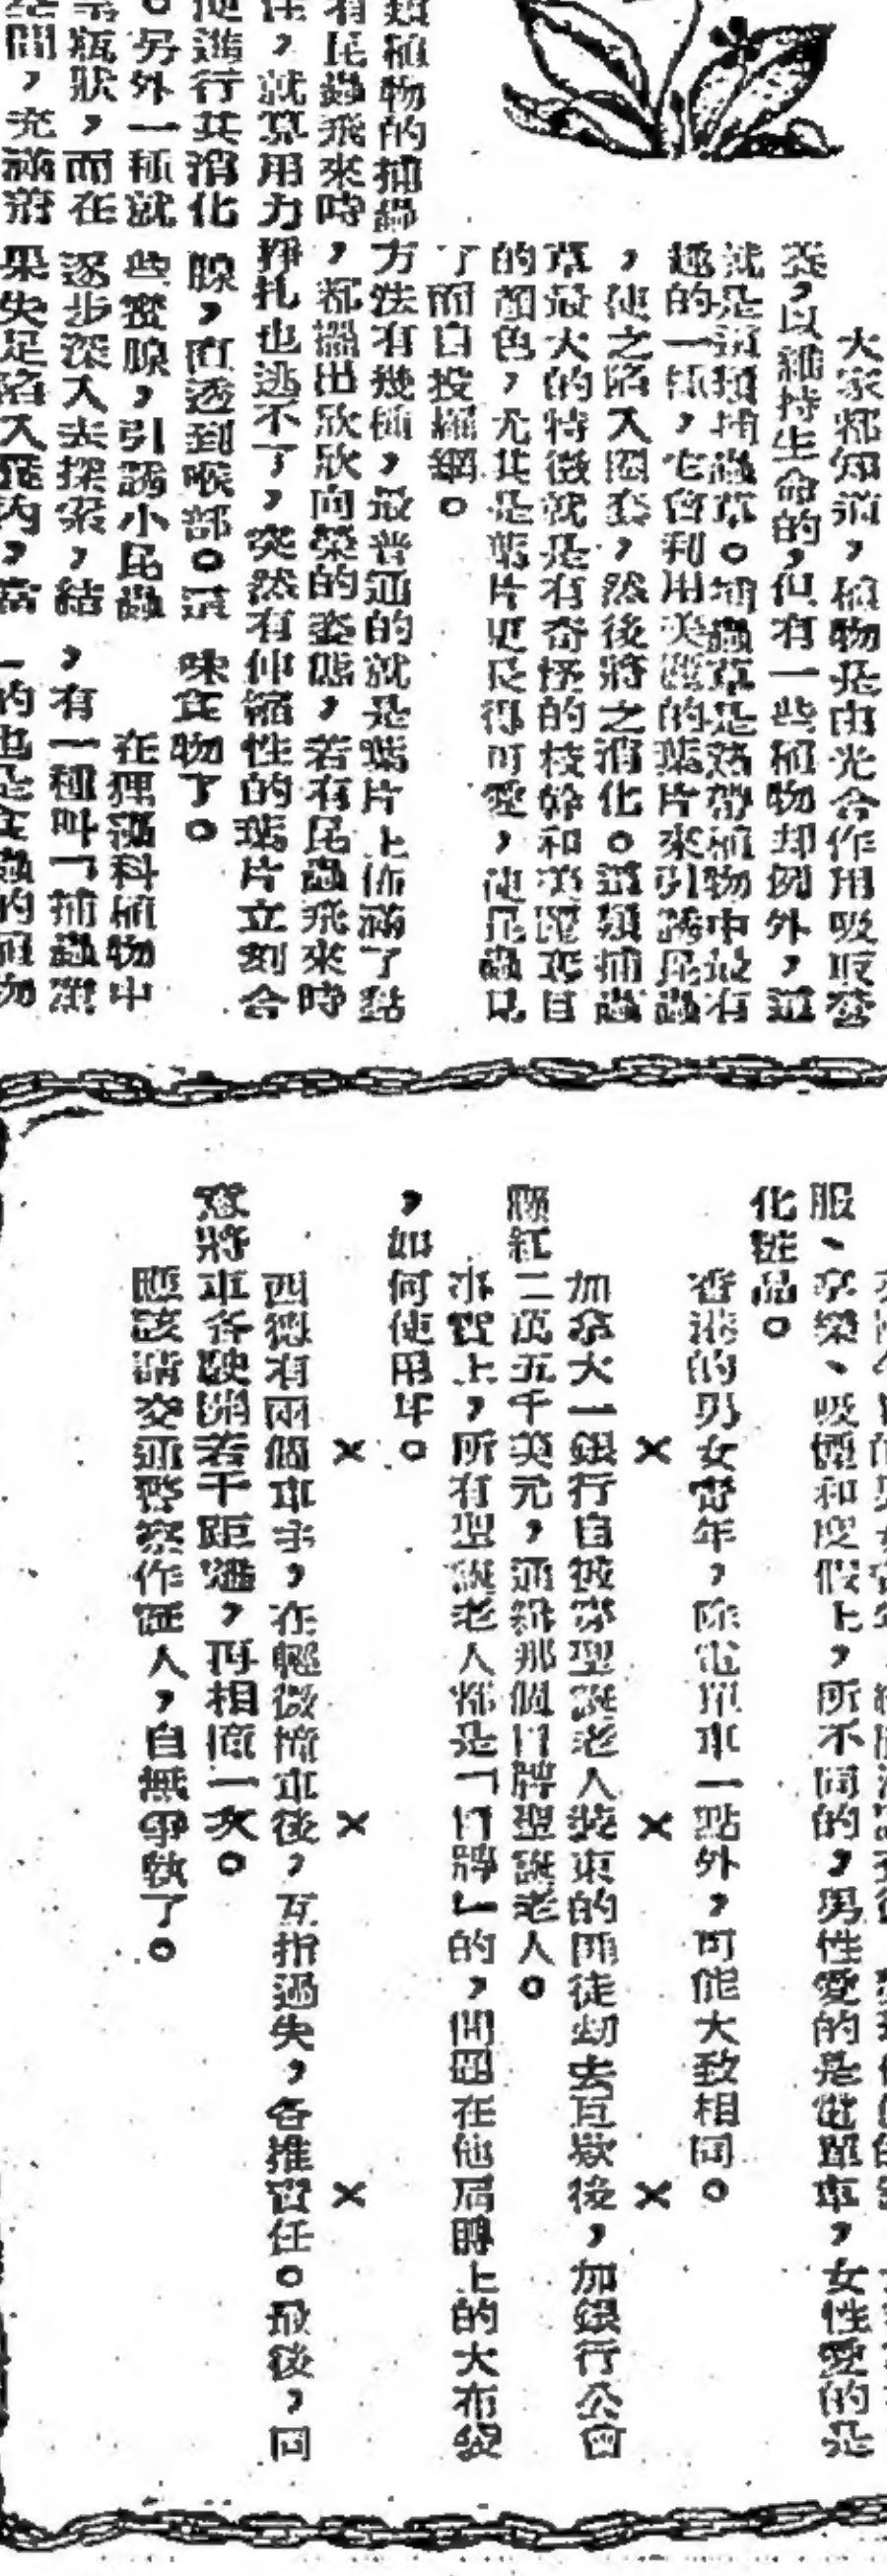 大家都知道,植物是由光合作用吸取營
養,以維持生命的,但有一些植物却例外,這
就是這類捕蟲草。捕蟲草是熱帶植物中最有
趣的一種,它會利用美麗的葉片來引誘昆蟲
,使之陷入圈套,然後將之消化。這類捕蟲
草最大的特徵就是有奇怪的枝幹和美麗奪目
的顏色,尤其是葉片更是得可愛,使昆蟲見
了而自投羅網。
類植物的捕蟲方法有幾種,最普通的就是葉片上佈滿了黏
有昆蟲飛來時,都擺出欣欣向榮的姿態,若有昆蟲飛來時
住,就算用力掙扎也逃不了,突然有伸縮性的葉片立刻合
便進行其消化腺,直透到喉部。這
味食物了。
。另外一種就些蜜腺,引誘小昆蟲
在狸藻科植物中
瓶狀,而在逐步深入去探索,結
,有一種叫「捕蟲
間,充滿
果失足陷入瓶內,
的也是食蟲的植物
服、享樂、吸煙和度假上,所不同的,男性愛的是電單車,女性愛的是
化粧品。
香港的男女青年,除電單車一點外,可能大致相同。
× × ×
加拿大一銀行自被穿聖誕老人裝束的匪徒刧去巨欵後,加銀行公會
懸紅二萬五千美元,通緝那個冒牌聖誕老人。
事實上,所有聖誕老人都是「冒牌」的,問題在他肩膊上的大布袋
,如何使用耳。
× × ×
西德有兩個車主,在輕微撞車後,互指過失,各推責任。最後,同
意將車各駛開若干距離,再相撞一次。
應該請交通警察作証人,自無爭執了。